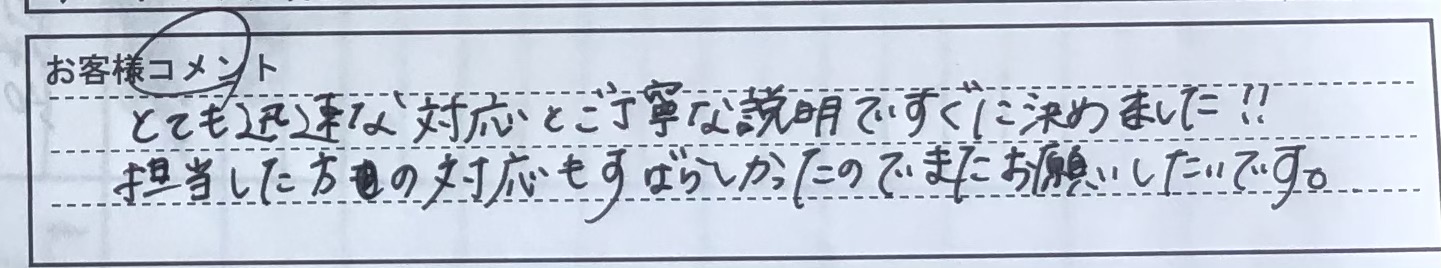 お客様コメント
とても迅速な対応とご丁寧な説明ですぐに決めました!!
担当した方の対応もすばらしかったのでまたお願いしたいです。